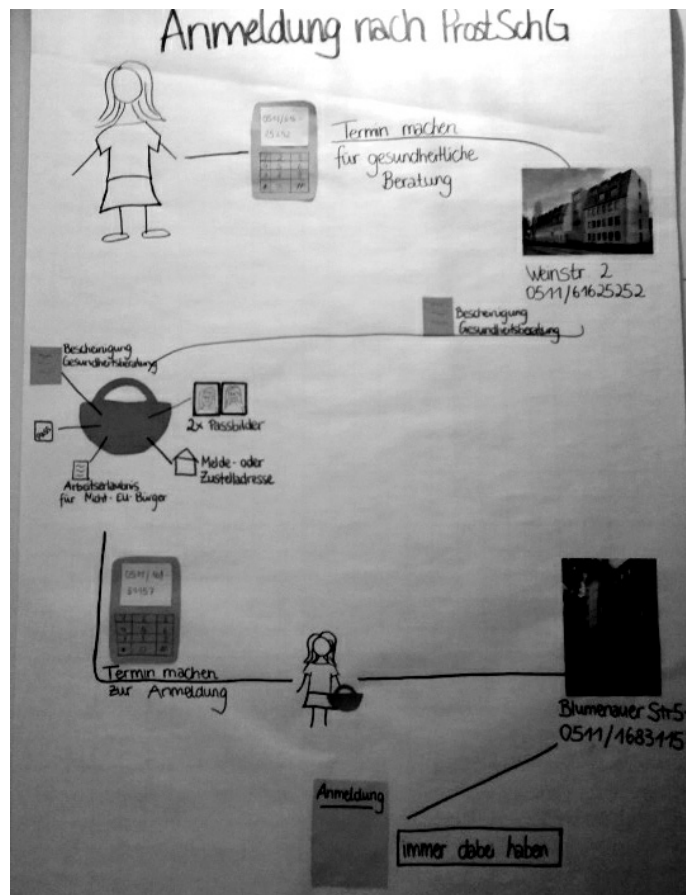 Anmeldung nach ProstSchG
0511/616-
25252
Termin machen
für gesundheitliche
Beratung
Weinstr 2
0511/61625252
Bescheinigung
Gesundheitsberatung
Bescheinigung
Gesundheitsberatung
2x Passbilder
Melde- oder
Zustelladresse
Arbeitserlaubnis
für Nicht-EU-Bürger
0511/168-
Termin machen
zur Anmeldung
Blumenauer Str 5
0511/1683115
Anmeldung
immer dabei haben